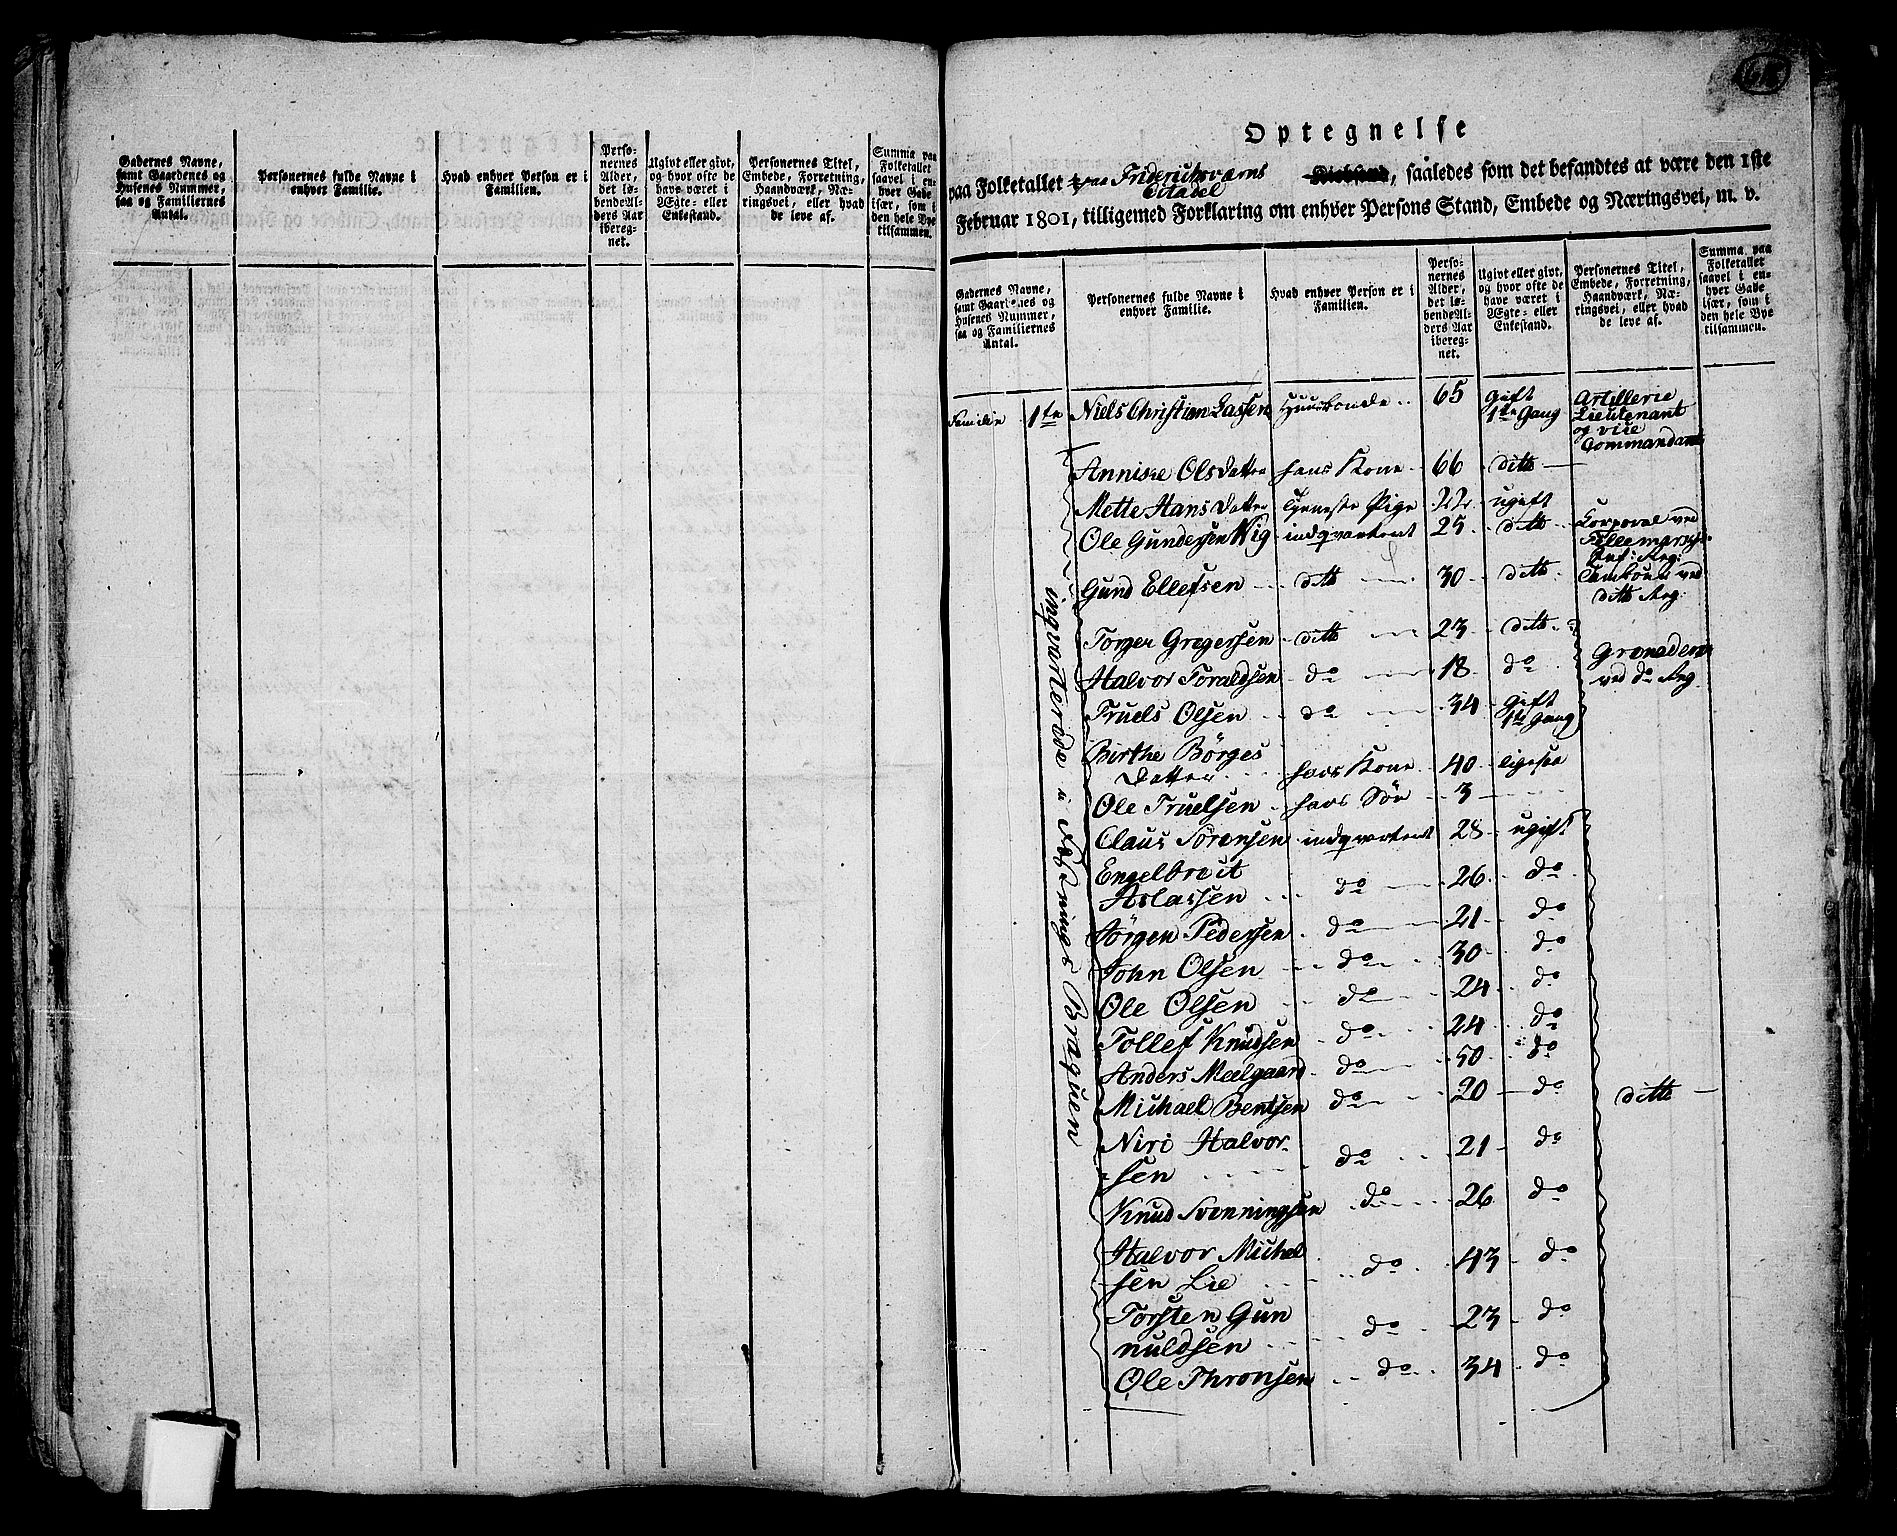 Gadernes Navne,
samt Gaardenes og
Husenes Nummer,
saa og Familiernes
Antal.
Personernes fulde Navne i
enhver Familie.
Hvad enhver Person er i
Familien.
Perso-
nernes
Alder,
det lø-
bendeAl-
ders Aar
iberegnet.
Ugivt eller givt,
og hvor ofte de
have været i
Ægte- eller
Enkestand.
Personernes Titel,
Embede, Forretning,
Haandværk, Næ-
ringsvei, eller hvad
de leve af.
Summa paa
Folketallet
saavel i en-
hver Gade
især, som i
den hele Bye
tilsammen.
Optegnelse
paa Folketallet paa Friderichsværns
Citadel, saaledes som det befandtes at være den 1ste
Februar 1801, tilligemed Forklaring om enhver Persons Stand, Embede og Næringsvei, m. v.
Gadernes Navne,
samt Gaardenes og
Husenes Nummer,
saa og Familiernes
Antal.
Personernes fulde Navne i
enhver Familie.
Hvad enhver Person er i
Familien.
Perso-
nernes
Alder,
det lø-
bendeAl-
ders Aar
ibereg-
net.
Ugivt eller givt,
og hvor ofte de
have været i
Ægte- eller
Enkestand.
Personernes Titel,
Embede, Forretning,
Haandværk, Næ-
ringsvei, eller hvad
de leve af.
Summa paa
Folketallet
saavel i en-
hver Gade
især, som i
den hele Bye
tilsammen.
Familie 1te Niels Christian Lassen Huusbonde 65 gift 1te Gang Artillerie Lieutenant og vice Commandant
Annisæ Olsdatter hans Kone 66 ditto
Mette Hansdatter tjeneste Pige 22 ugift
Ole Gundersen Wiig indqvarteret 25 ditto Corporal ved Tellemarchs Inf: Reg:
Gund Ellefsen ditto 30 ditto Tambour ved ditto Reg:
Torger Gregersen ditto 23 ditto
Halvor Toraldsen do 18 do Grenaderer ved do Reg
Truels Olsen do 34 gift 1te Gang
Birthe Børges
Datter hans Kone 40 ligesaa
Ole Truelsen hans Søn 3
Claus Sørensen indqvarteret 28 ugift
Engelbreit
Aslassen do 26 do
Jørgen Pedersen do 21 do
John Olsen do 30 do
Ole Olsen do 24 do
Tollef Knudsen do 24 do
Anders Meelgaard do 50 do
Michael Bentsen do 20 do ditto
Niri Halvor-
sen do 21 do
Knud Svenningsen do 26 do
Halvor Michel
sen Lie do 43 do
Torsten Gun
nuldsen do 23 do
Ole Thronsen do 34 do
ingvarterede i Fæstnings Braquen